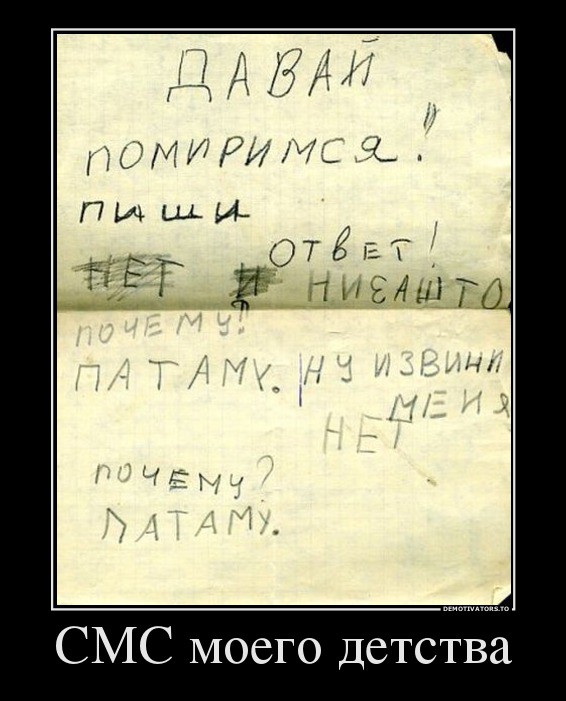 ДАВАЙ
ПОМИРИМСЯ!
ПИШИ
ОТВЕТ!
НЕТ И НИЗАШТО
ПОЧЕМУ!
ПАТАМУ. НУ ИЗВИНИ
МЕНЯ
НЕТ
ПОЧЕМУ?
ПАТАМУ.
DEMOTIVATORS.TO
СМС моего детства